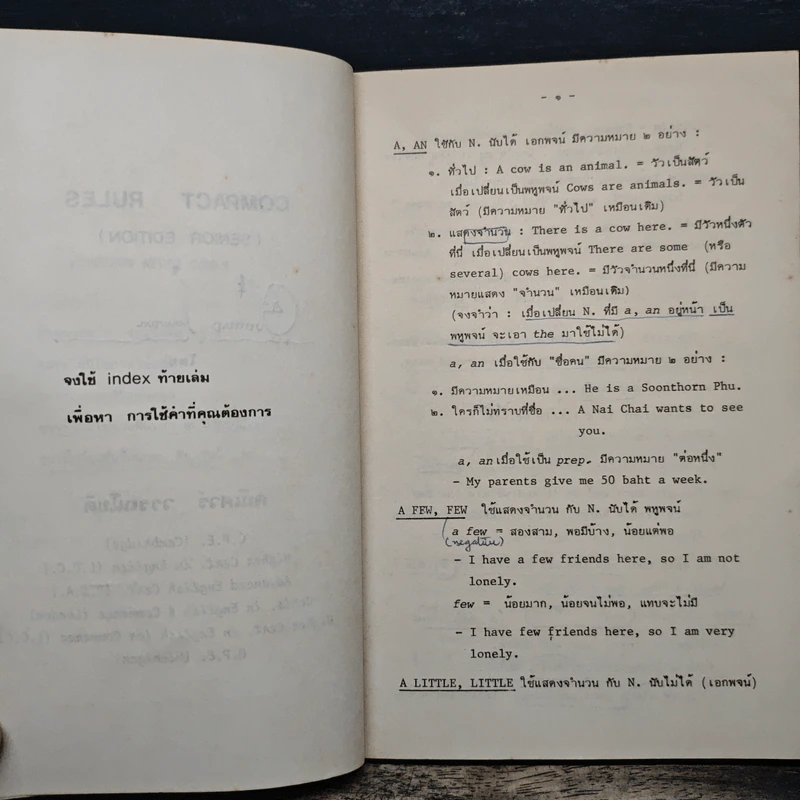 จงใช้ index ท้ายเล่ม
เพื่อหา การใช้คำที่คุณต้องการ
- ๑ -
A, AN ใช้กับ N. นับได้ เอกพจน์ มีความหมาย ๒ อย่าง :
๑. ทั่วไป : A cow is an animal. = วัวเป็นสัตว์
เมื่อเปลี่ยนเป็นพหูพจน์ Cows are animals. = วัวเป็น
สัตว์ (มีความหมาย "ทั่วไป" เหมือนเดิม)
๒. แสดงจำนวน : There is a cow here. = มีวัวหนึ่งตัว
ที่นี่ เมื่อเปลี่ยนเป็นพหูพจน์ There are some (หรือ
several) cows here. = มีวัวจำนวนหนึ่งที่นี่ (มีความ
หมายแสดง "จำนวน" เหมือนเดิม)
(จงจำว่า : เมื่อเปลี่ยน N. ที่มี a, an อยู่หน้า เป็น
พหูพจน์ จะเอา the มาใช้ไม่ได้)
a, an เมื่อใช้กับ "ชื่อคน" มีความหมาย ๒ อย่าง :
๑. มีความหมายเหมือน ... He is a Soonthorn Phu.
๒. ใครก็ไม่ทราบที่ชื่อ ... A Nai Chai wants to see
you.
a, an เมื่อใช้เป็น prep. มีความหมาย "ต่อหนึ่ง"
- My parents give me 50 baht a week.
A FEW, FEW ใช้แสดงจำนวน กับ N. นับได้ พหูพจน์
a few = สองสาม, พอมีบ้าง, น้อยแต่พอ
(negative)
- I have a few friends here, so I am not
lonely.
few = น้อยมาก, น้อยจนไม่พอ, แทบจะไม่มี
- I have few friends here, so I am very
lonely.
A LITTLE, LITTLE ใช้แสดงจำนวน กับ N. นับไม่ได้ (เอกพจน์)